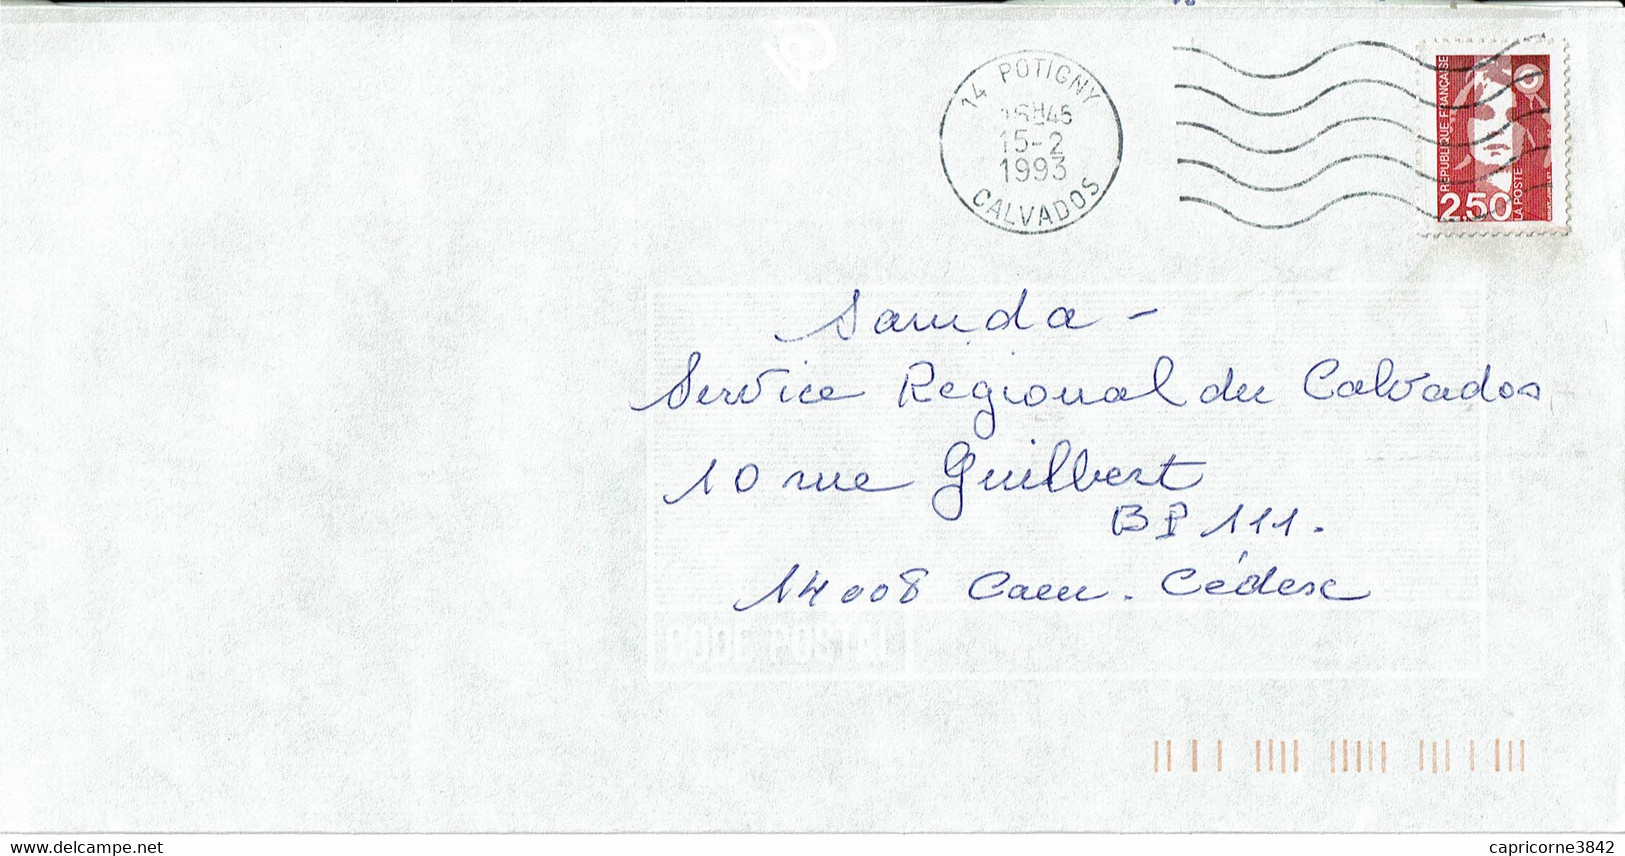 14 POTIGNY
16H45
15-2
1993
CALVADOS
REPUBLIQUE FRANÇAISE
2,50
LA POSTE
Samda -
Service Régional du Calvados
10 rue Guilbert
BP 111.
14008 Caen. Cédex
CODE POSTAL
www.delcampe.net
capricorne3842